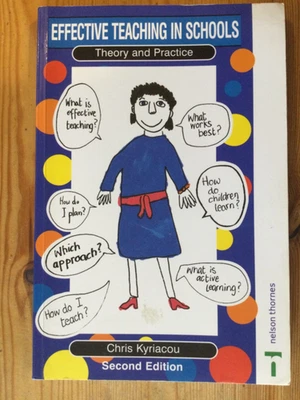 EFFECTIVE TEACHING IN SCHOOLS
Theory and Practice
What is
effective
teaching?
What
works
best?
How do
I plan?
How
do
children
learn?
Which
approach?
What is
active
learning?
How do I
teach?
Chris Kyriacou
Second Edition
nelson thornes